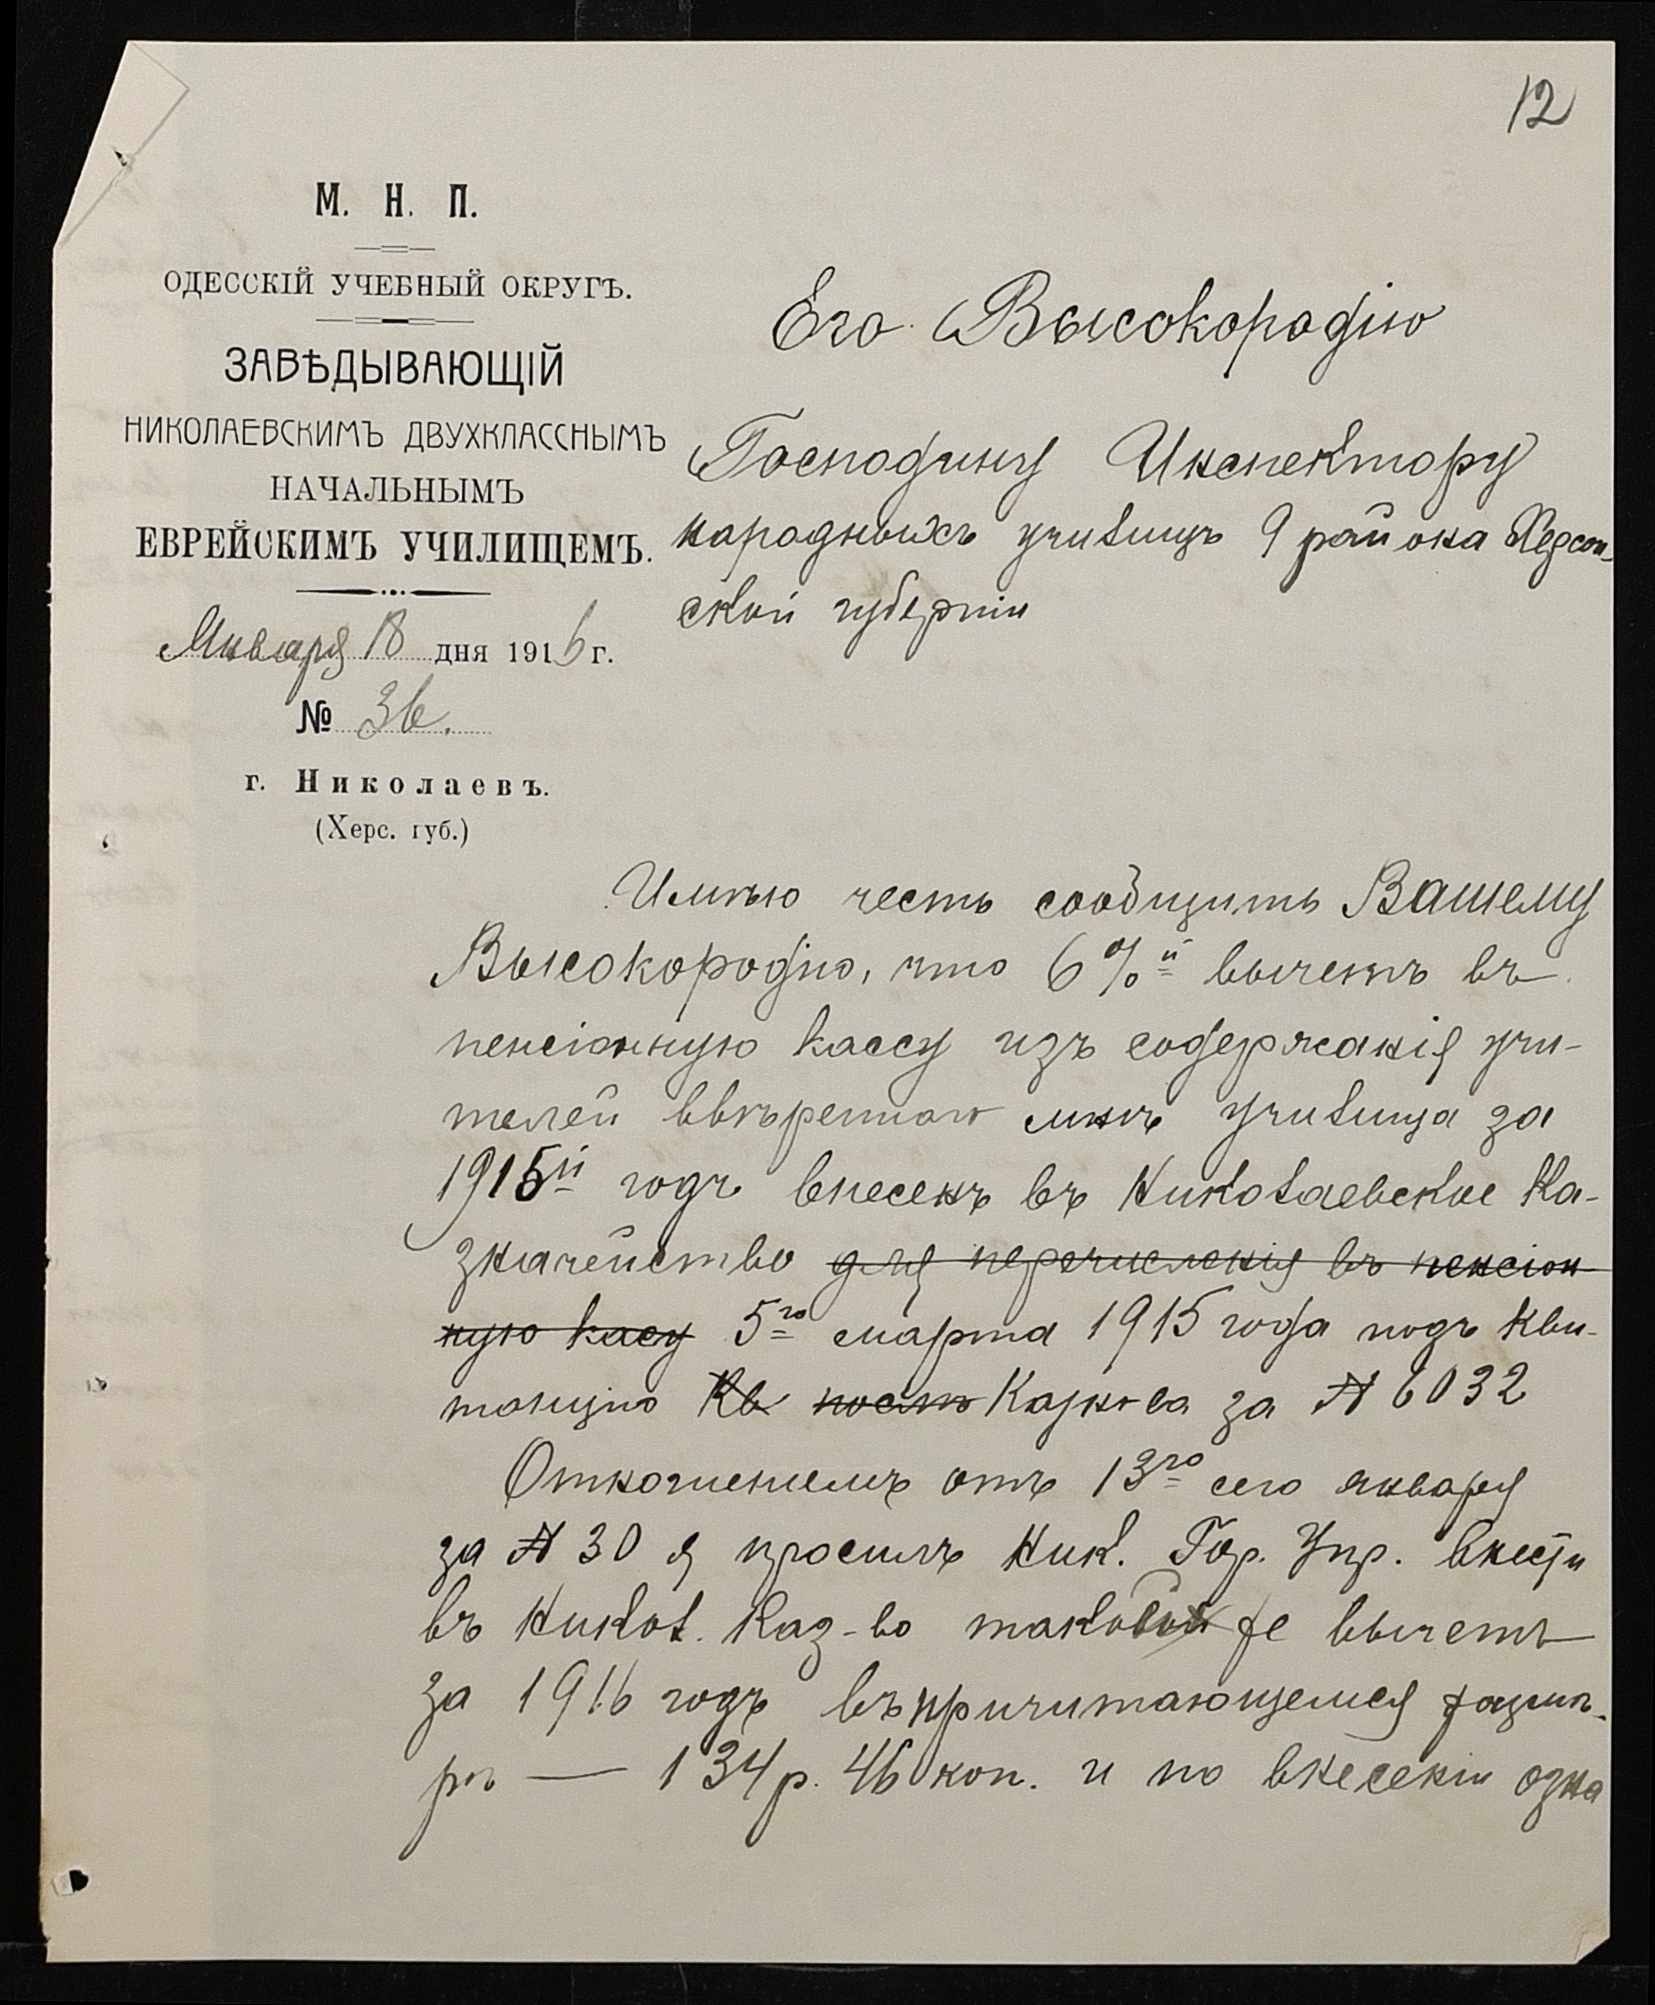 12
М. Н. П.
ОДЕССКІЙ УЧЕБНЫЙ ОКРУГЪ.
ЗАВѢДЫВАЮЩІЙ
НИКОЛАЕВСКИМЪ ДВУХКЛАССНЫМЪ
НАЧАЛЬНЫМЪ
ЕВРЕЙСКИМЪ УЧИЛИЩЕМЪ.
Января 18 дня 1916 г.
№ 36.
г. Николаевъ.
(Херс. губ.)
Его Высокородію
Господину Инспектору
народныхъ училищъ 9 района Херсон-
ской губерніи
Имѣю честь сообщить Вашему
Высокородію, что 6%й вычетъ въ
пенсіонную кассу изъ содержанія учи-
телей ввѣреннаго мнѣ училища за
1915й годъ внесенъ въ Николаевское Ка-
значейство для перечисленія въ пенсіон-
ную касу 5го марта 1915 года подъ кви-
танцію Кв Казн-ва за № 6032
Отношеніемъ отъ 13го сего января
за № 30 я просилъ Ник. Гор. Упр. внести
въ Никол. Каз-во таковой же вычетъ
за 1916 годъ въ причитающемся размѣ-
рѣ — 134 р. 46 коп. и по внесеніи озна